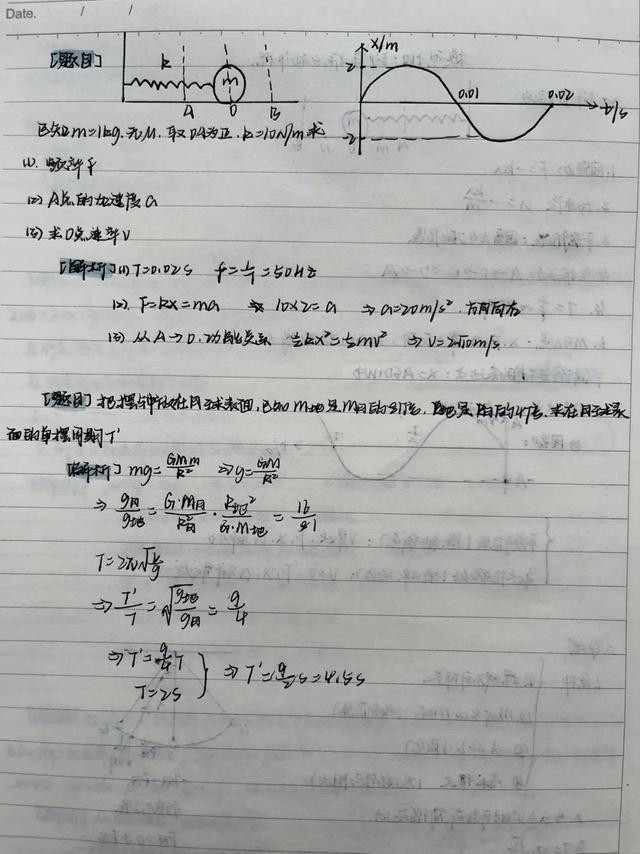 Date. / /
[题目]
k m A O B
x/m 2 -2 0.01 0.02 t/s
已知m=1kg, 无μ, 取OA为正, k=10N/m 求
(1). 频率f
(2) A点的加速度a
(3) 求O点速率V
[解析] (1) T=0.02s f=1/T=50Hz
(2). F=kx=ma ⇒ 10×2=a ⇒ a=20m/s², 方向向右
(3) 从A→O. 功能关系 ½kx²=½mv² ⇒ v=2√10m/s
[题目] 把摆钟放在月球表面, 已知M地是M月的81倍, R地是R月的4倍, 求在月球表
面的单摆周期T'
[解析] mg=GMm/R² ⇒ g=GM/R²
⇒ g月/g地=G·M月/R月²·R地²/G·M地=16/81
T=2π√L/g
⇒ T'/T=√g地/g月=9/4
⇒T'=9/4T
T=2s } ⇒ T'=9/2s=4.5s